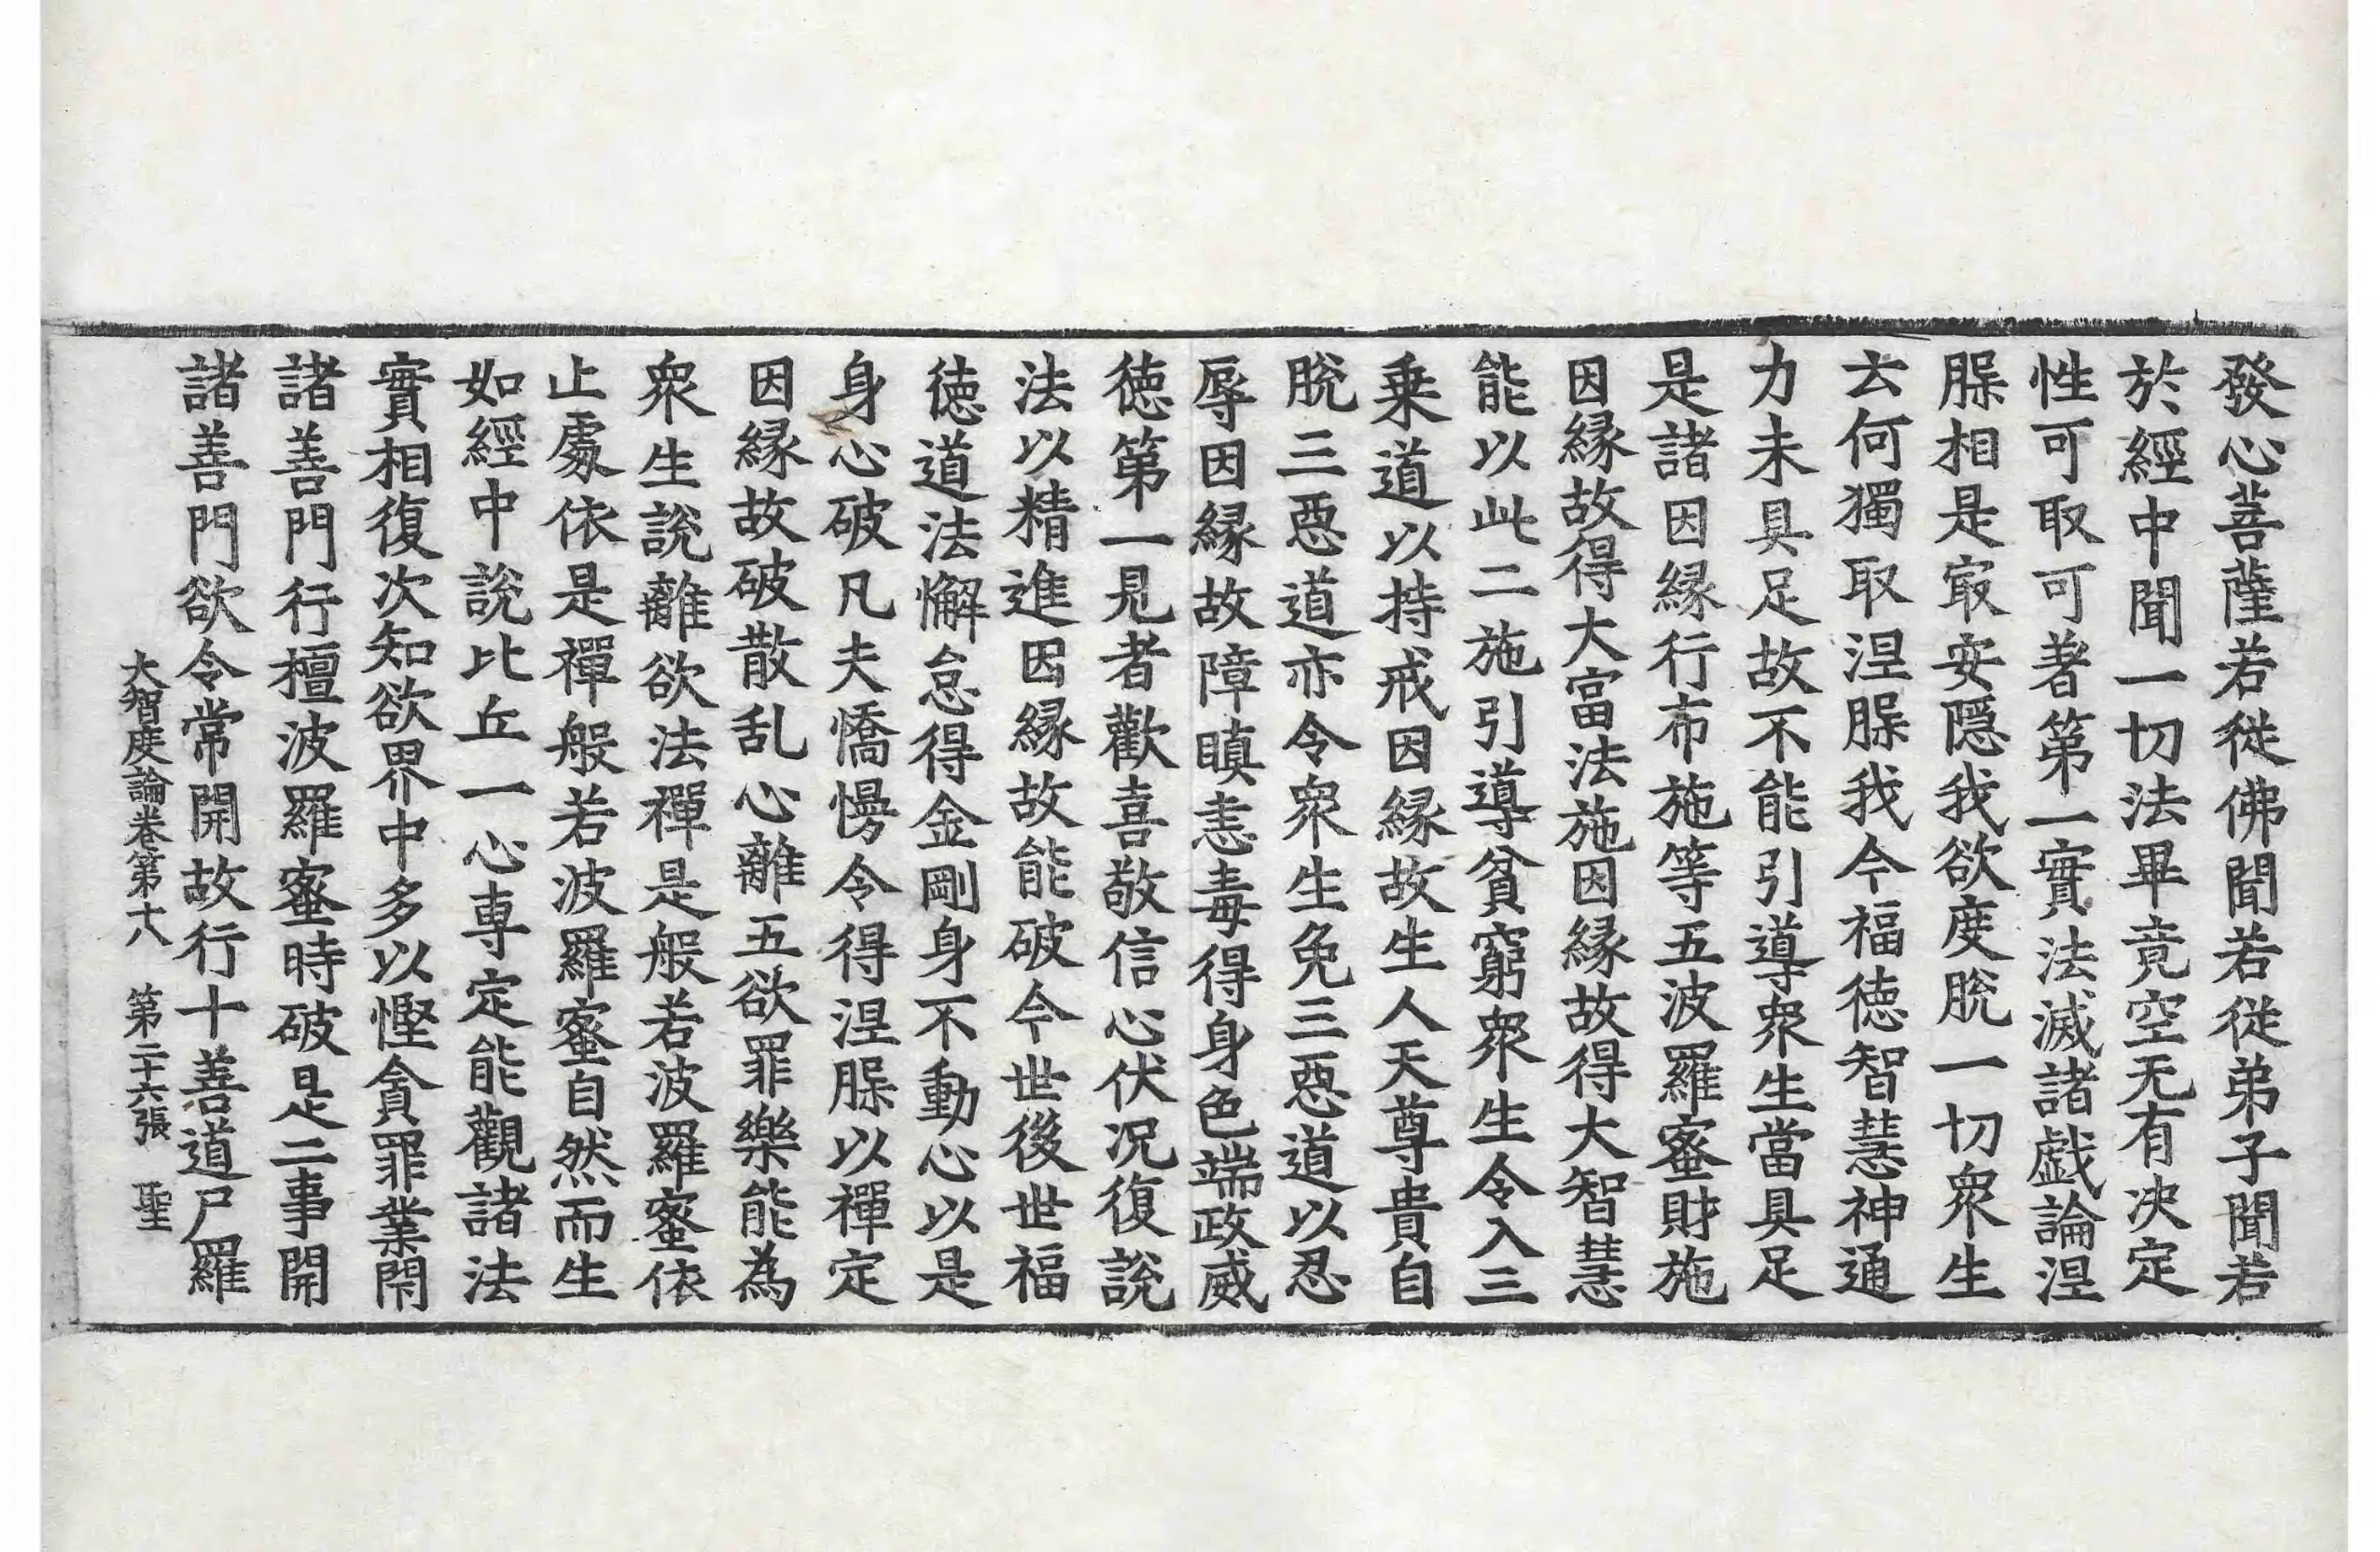 發心菩薩若從佛聞若從弟子聞若
於經中聞一切法畢竟空无有决定
性可取可著第一實法滅諸戱論涅
脲相是㝡安隱我欲度脫一切衆生
云何獨取涅脲我今福徳智慧神通
力未具足故不能引導衆生當具足
是諸因縁行布施等五波羅蜜財施
因縁故得大富法施因縁故得大智慧
能以此二施引導貧窮衆生令入三
乗道以持戒因縁故生人天尊貴自
脫三惡道亦令衆生免三惡道以忍
辱因縁故障瞋恚毒得身色端政威
徳第一見者歡喜敬信心伏况復說
法以精進因縁故能破今世後世福
徳道法懈怠得金剛身不動心以是
身心破凡夫憍慢令得涅脲以禪定
因縁故破散乱心離五欲罪樂能為
衆生說離欲法禪是般若波羅蜜依
止處依是禪般若波羅蜜自然而生
如經中說比丘一心専定能觀諸法
實相復次知欲界中多以慳貪罪業閇
諸善門行檀波羅蜜時破是二事開
諸善門欲令常開故行十善道尸羅
大智度論卷第十八 第二十六張 聖